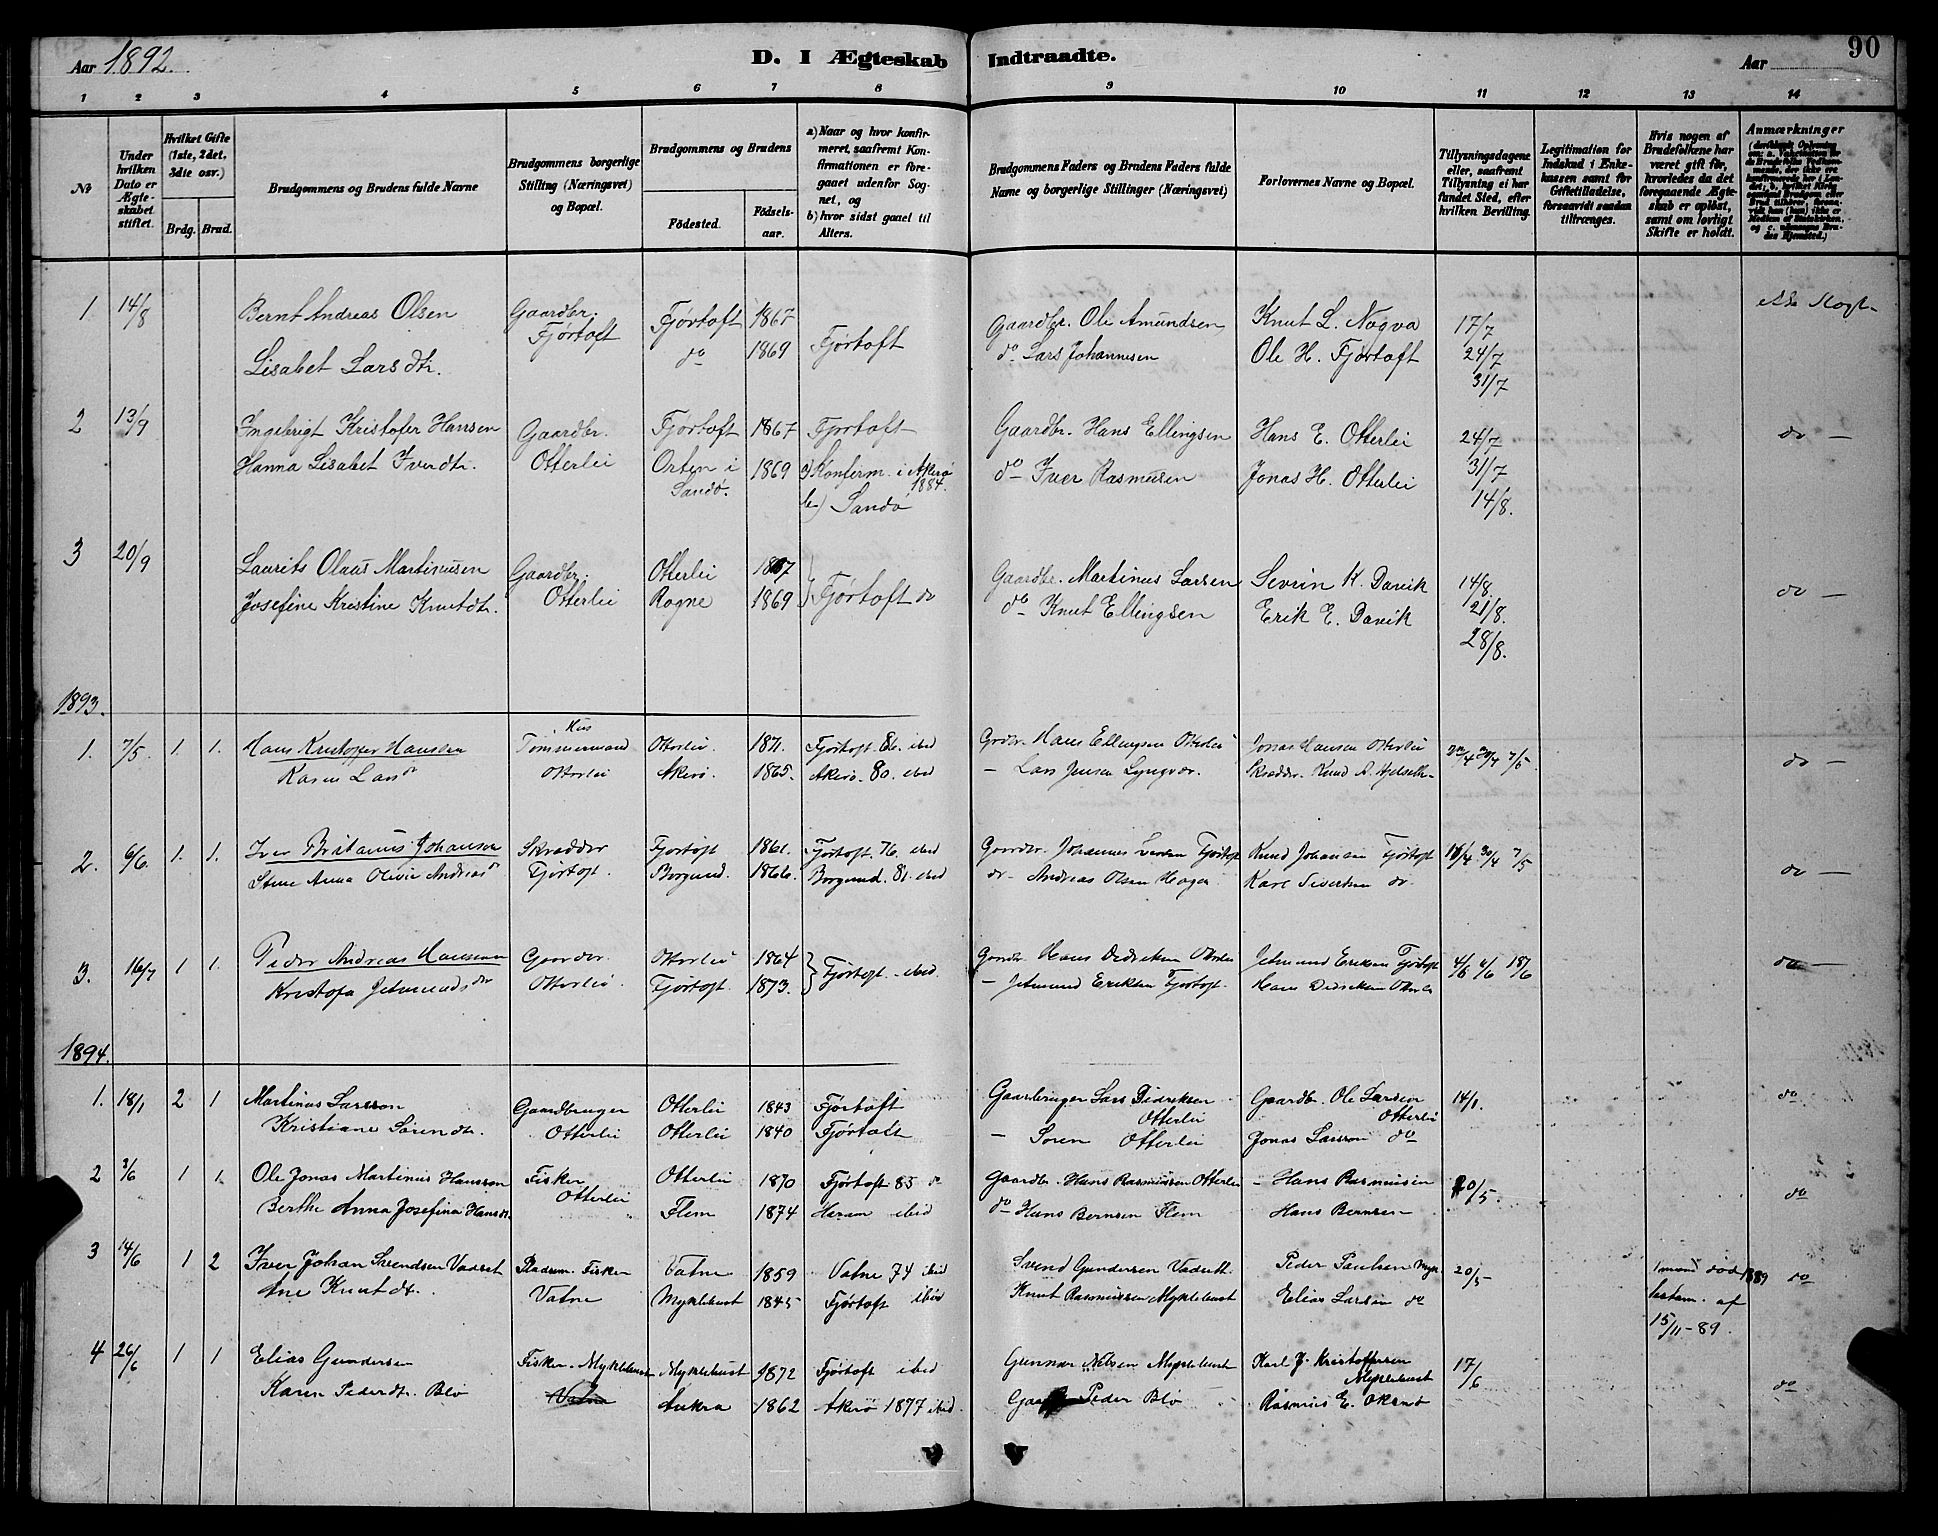 Aar 1892.
D. I Ægteskab Indtraadte.
Aar
90
1 2 3 4 5 6 7 8 9 10 11 12 13 14
№
Under hvilken Dato er Ægteskabet stiftet.
Hvilket Gifte (1ste, 2det, 3die osv.)
Brdg. Brud.
Brudgommens og Brudens fulde Navne
Brudgommens borgerlige Stilling (Næringsvei) og Bopæl.
Brudgommens og Brudens
Fødested.
Fødselsaar.
a) Naar og hvor konfirmeret, saafremt Konfirmationen er foregaaet udenfor Sognet, og
b) hvor sidst gaaet til Alters.
Brudgommens Faders og Brudens Faders fulde Navne og borgerlige Stillinger (Næringsvei)
Forlovernes Navne og Bopæl.
Tillysningsdagene eller, saafremt Tillysning ei har fundet Sted, efter hvilken Bevilling.
Legitimation for Indskud i Enkekassen samt for Giftetilladelse, forsaavidt saadan tiltrænges.
Hvis nogen af Brudefolkene har været gift før, hvorledes da det foregaaende Ægteskab er opløst, samt om lovligt Skifte er holdt.
Anmærkninger
1 14/8 Bernt Andreas Olsen Gaardbr. Fjørtoft Fjørtoft 1867 Fjørtoft Gaardbr. Ole Amundsen Knut L. Nogva 17/7
Lisabet Larsdtr. do 1869 do Lars Johannesen Ole H. Fjørtoft 24/7
31/7
2 13/9 Ingebrigt Kristofer Hansen Gaardbr. Fjørtoft 1867 Fjørtoft Gaardbr. Hans Ellingsen Hans E. Otterlei 24/7 do —
Hanna Lisabet Iverdtr. Otterlei Orten i Sandø. 1869 a) Konferm. i Akerø 1884. do Iver Rasmusen Jonas H. Otterlei 31/7
b) Sandø 14/8.
3 20/9 Laurits Olaus Martinusen Gaardbr. Otterlei 1867 Fjørtoft do Gaardbr. Martinus Larsen Sevrin K. Davik 14/8. do —
Josefine Kristine Knutdtr. Otterlei Rogne 1869 do Knut Ellingsen Erik E. Davik 21/8.
28/8.
1893.
1. 7/5. 1. 1. Hans Kristoffer Hansen Hus Tømmermand Otterlei 1871. Fjørtoft 86. ibid Grdbr. Hans Ellingsen Otterlei Jonas Hansen Otterlei 30/4 7/5 do —
Karen Larsdr Otterlei Akerø. 1865. Akerø. 80. ibid — Lars Jensen Skrædder. Knud A.
2. 6/6. 1. 1. Iver Johansen Skrædder Fjørtoft 1861. Fjørtoft. 76. ibid Gaardbr. Johannes Fjørtoft Knud Johansen Fjørtoft 30/4 7/5 do —
Anna Olivie Andreasdr Fjørtoft. Borgund. 1866. Borgund. 81. ibid do. Andreas Olsen Karl Sivertsen do.
3. 16/7 1 1. Peder Andreas Hansen Gaardbr. Otterlei 1864 Fjørtoft. ibid. Gaardbr. Hans Didriksen Otterlei Jetmund Eriksen Fjørtoft 18/6 do —
Kristofa Jetmundsdtr Otterlei. Fjørtoft. 1873. — Jetmund Eriksen Fjørtoft. Hans Didriksen Otterlei
1894.
1. 18/1 2 1 Martinus Larsson Gaardbruger Otterlei 1843 Fjørtoft Gaarbruger Lars Didriksen Otterlei Gaardb. Ole Larsen Otterlei 14/1. do
Kristiane Sørendtr. Otterlei Otterlei 1840 Fjørtoft — Søren Otterlei Jonas Larsson do
2 3/6 1 1 Ole Jonas Martinus Hansson Fisker Otterlei Otterlei 1870 Fjørtoft 85 do Gaardbr. Hans Rasmussen Otterlei — Hans Rasmusen 20/5. do
Berthe Anna Josefina Hansdt. Flem 1874 Haram ibid do Hans Bernsen Flem Hans Bernsen
3 14/6 1 2 Iver Johan Svendsen Vadset Pladsm. Fisker Vatne 1859 Vatne 74 ibid Svend Gundersen Peder Paulsen Mykl 20/5 1 mand død 1889 do
Ane Knutdt. Vatne Myklebust 1845 Fjørtoft ibid Knut Rasmussen Myklebust Elias Larsen do af 15/11-89.
4 26/6 1 1 Elias Gundersen Fisker. Myklebust Myklebust 1872 Fjørtoft ibid Gunnar Nilsen Myklebust Karl J. Kristoffersen Myklebust 17/6 do
Karen Pederdtr. Blø Vatne Aukra 1862 Akerø 1877 ibid. Peder Blø Rasmus E.